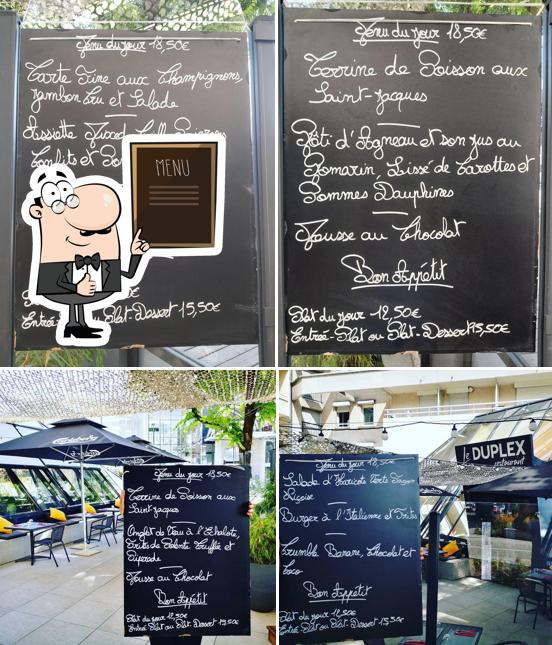 Menu du jour 18,50€
Tarte Fine aux Champignons,
Jambon Cru et Salade
Assiette
Confits et
MENU
Entrée Plat-Dessert 15,50€
Menu du jour 18,50€
Terrine de Poisson aux
Saint-Jacques
Rôti d'Agneau et son jus au
Romarin, Lissé de Carottes et
Pommes Dauphines
Mousse au Chocolat
Bon Appétit
Plat du jour 12,50€
Entrée-Plat ou Plat-Dessert 15,50€
Menu du jour 18,50€
Terrine de Poisson aux
Saint Jacques
Onglet de Veau à l'Echalote,
Frites de Polenta Truffée et
Piperade
Mousse au Chocolat
Bon Appétit
Plat du jour 12,50€
Entrée-Plat ou Plat-Dessert 15,50€
le DUPLEX
restaurant
Menu du jour 18,50€
Salade d'Haricots Verts Façon
Niçoise
Burger à l'Italienne et Frites
Crumble Banane, Chocolat et
Coco
Bon Appétit
Plat du jour 12,50€
Entrée-Plat ou Plat-Dessert 15,50€